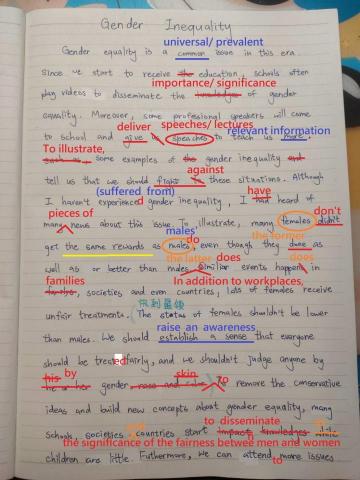 Gender Inequality
universal/ prevalent
Gender equality is a common issue in this era.
Since we start to receive the education, schools often
importance/ significance
play videos to disseminate the knowledge of gender
equality. Moreover, some professional speakers will come
deliver speeches/ lectures
relevant information
to school and give speeches to teach us more.
To illustrate,
such as, some examples of the gender inequality and
against
tell us that we should fight to these situations. Although
(suffered from) have
I haven't experienced gender inequality, I had heard of
pieces of don't
many news about this issue. To illustrate, many females didn't
males do the former
get the same rewards as males, even though they done as
the latter does does
well as or better than males. Similar events happen in
families In addition to workplaces,
societies and even countries, lots of females receive
unfair treatments. The status of females shouldn't be lower
raise an awareness
than males. We should establish a sense that everyone
should be treated fairly, and we shouldn't judge anyone by
by skin To
his or her gender, remove the conservative
ideas and build new concepts about gender equality, many
to disseminate
schools, societies countries start knowledges while
the significance of the fairness betwee men and women
children are little. Futhermore, we can attend more issues
to